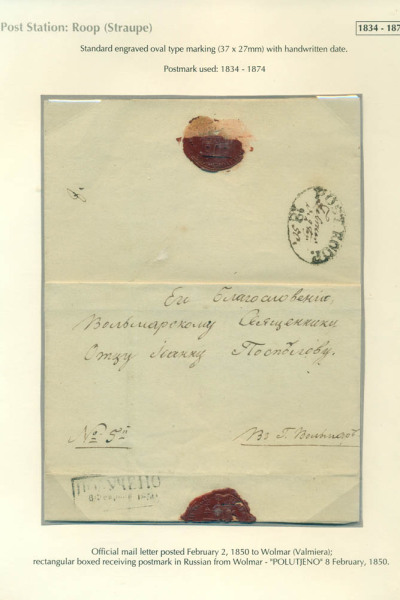 Post Station: Roop (Straupe)
1834 - 187
Standard engraved oval type marking (37 x 27mm) with handwritten date.
Postmark used: 1834 - 1874
POST ROOP.
Его Благословенію,
Вольмарскому Священнику
Отцу Іоанну Поспѣлову.
№ 5й
Въ Г. Вольмарѣ
ПОЛУЧЕНО
Official mail letter posted February 2, 1850 to Wolmar (Valmiera);
rectangular boxed receiving postmark in Russian from Wolmar - "POLUTJENO" 8 February, 1850.